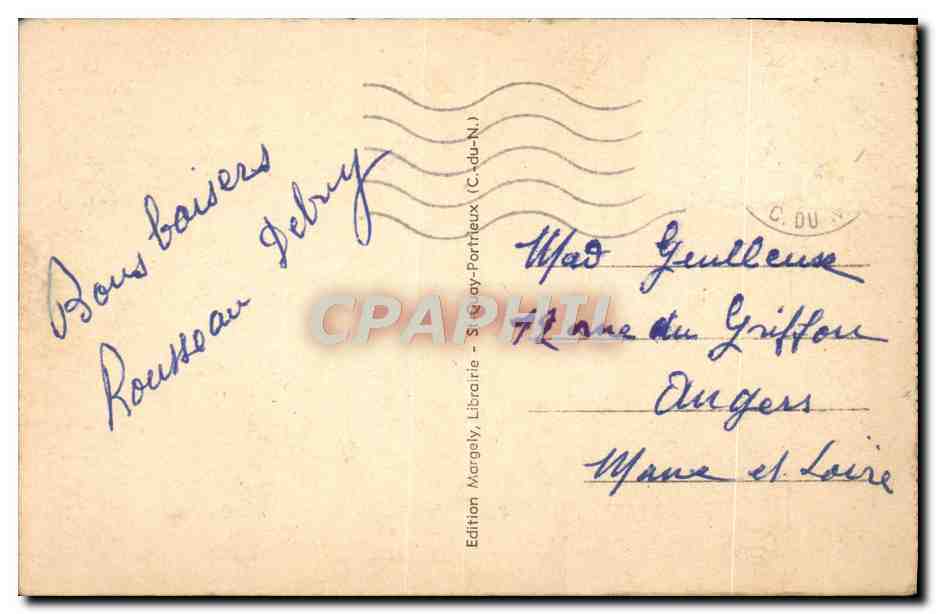 Bons baisers
Rousseau Debry
Edition Margely, Librairie - St-Quay-Portrieux (C.-du-N.)
C. DU N
Mad Geulleuse
12 rue du Griffon
Angers
Mane et Loire
CPAPHIL